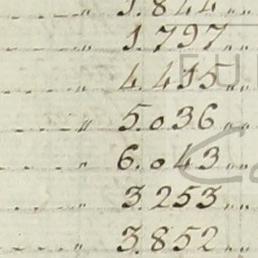 1.844 „
„ 1.797 „
„ 4.435 „
„ 5.036 „
„ 6.043 „
„ 3.253 „
„ 3.852 „